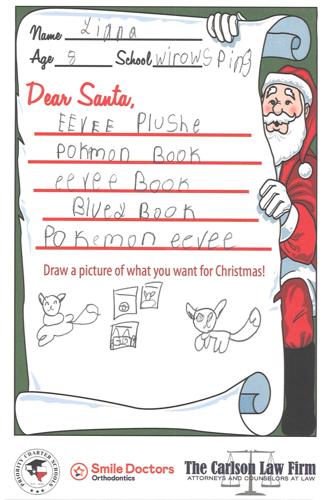 Name Linna
Age 8 School wirows Ping
Dear Santa,
EEVEE Plushe
POKMON BOOK
eevee BOOK
Bluey BOOK
POKemon eevee
Draw a picture of what you want for Christmas!
PRIORITY CHARTER SCHOOLS
Smile Doctors
Orthodontics
The Carlson Law Firm
ATTORNEYS AND COUNSELORS AT LAW